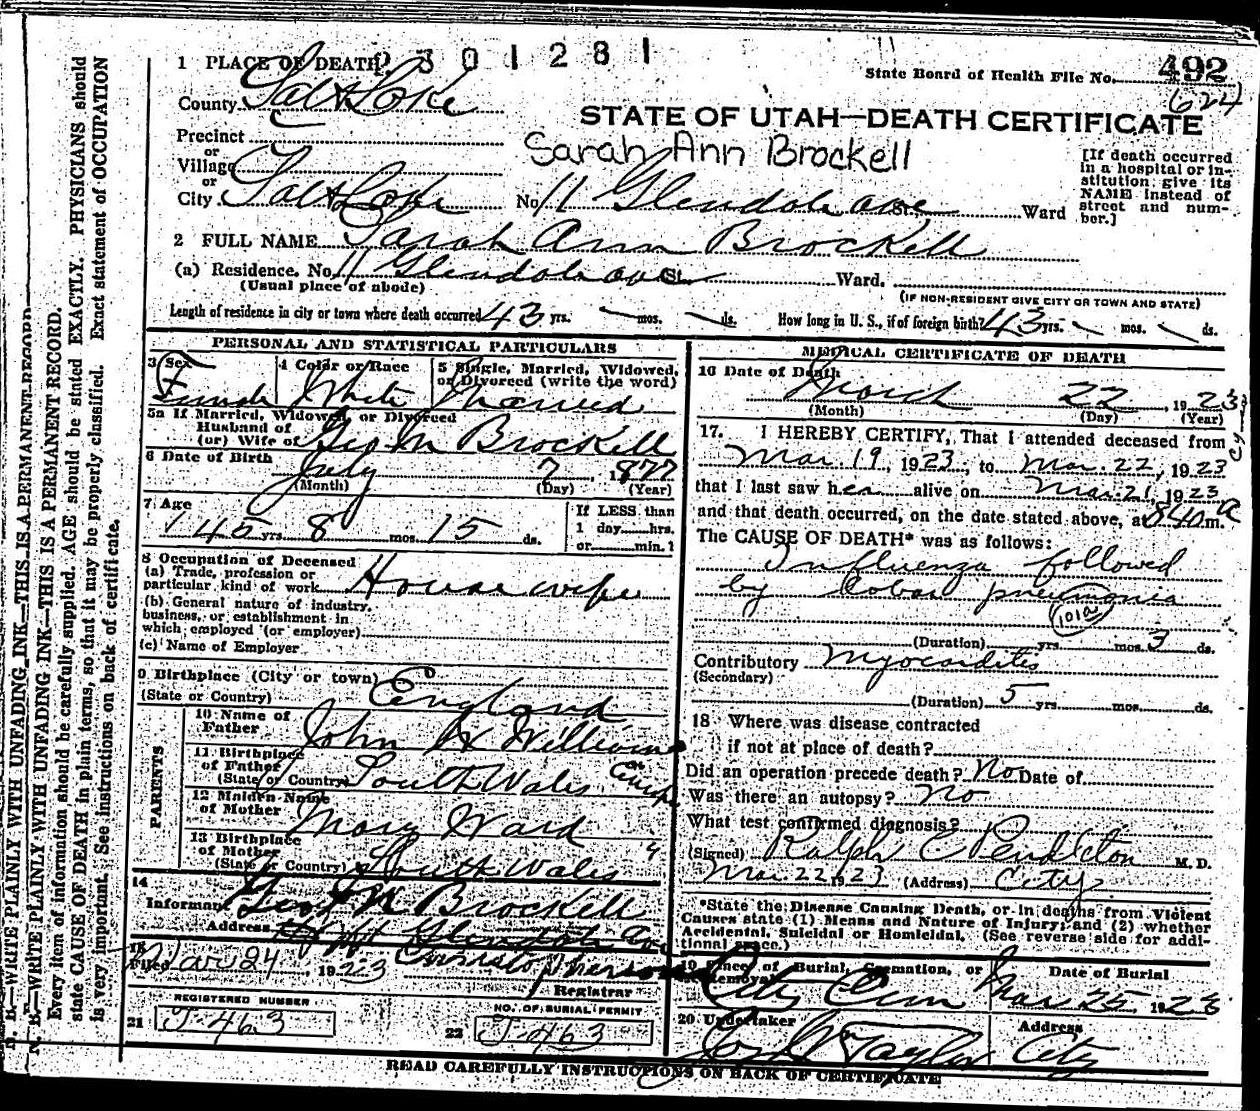 1 PLACE OF DEATH 2 3 0 1 2 8 1
State Board of Health File No. 492
624
County Salt Lake
STATE OF UTAH—DEATH CERTIFICATE
Precinct
or
Village
Sarah Ann Brockell
or
City Salt Lake No. 11 Glendale ave St. Ward
[If death occurred in a hospital or in-
stitution give its
NAME instead of
street and num-
ber.]
2 FULL NAME Sarah Ann Brockell
(a) Residence. No. 11 Glendale ave St. Ward.
(Usual place of abode)
(IF NON-RESIDENT GIVE CITY OR TOWN AND STATE)
Length of residence in city or town where death occurred 43 yrs. — mos. — ds. How long in U. S., if of foreign birth? 43 yrs. — mos. — ds.
PERSONAL AND STATISTICAL PARTICULARS
3 Sex Female
4 Color or Race White
5 Single, Married, Widowed,
or Divorced (write the word)
Married
5a If Married, Widowed, or Divorced
Husband of
(or) Wife of Geo M Brockell
6 Date of Birth July 7, 1877
(Month) (Day) (Year)
7 Age 45 yrs. 8 mos. 15 ds.
If LESS than
1 day......hrs.
or......min.?
8 Occupation of Deceased
(a) Trade, profession or
particular kind of work Housewife
(b) General nature of industry,
business, or establishment in
which employed (or employer)
(c) Name of Employer
9 Birthplace (City or town)
(State or Country) England
PARENTS
10 Name of
Father John W Williams
11 Birthplace
of Father
(State or Country) South Wales
12 Maiden Name
of Mother Mary Ward
13 Birthplace
of Mother
(State or Country) South Wales
14
Informant Geo M Brockell
Address Glendale Ave
15
Filed Mar 24 1923 Christopherson
Registrar
REGISTERED NUMBER
21 J-463
NO. OF BURIAL PERMIT
22 J-463
MEDICAL CERTIFICATE OF DEATH
16 Date of Death
March 22, 1923
(Month) (Day) (Year)
17. I HEREBY CERTIFY, That I attended deceased from
Mar. 19, 1923, to Mar. 22, 1923
that I last saw her alive on Mar. 21, 1923
and that death occurred, on the date stated above, at 840 a m.
The CAUSE OF DEATH* was as follows:
Influenza followed
by lobar pneumonia
101a
(Duration) yrs. mos. 3 ds.
Contributory Myocarditis
(Secondary)
(Duration) 5 yrs. mos. ds.
18 Where was disease contracted
if not at place of death?
Did an operation precede death? No Date of
Was there an autopsy? No
What test confirmed diagnosis?
(Signed) Ralph C Pendleton M. D.
Mar. 22 1923 (Address) City
*State the Disease Causing Death, or in deaths from Violent
Causes state (1) Means and Nature of Injury; and (2) whether
Accidental, Suicidal or Homicidal. (See reverse side for addi-
tional space.)
19 Place of Burial, Cremation, or
Removal City Cem
Date of Burial
Mar 25 1923
20 Undertaker
Jos Wm Taylor
Address
City
READ CAREFULLY INSTRUCTIONS ON BACK OF CERTIFICATE
N. B.—WRITE PLAINLY WITH UNFADING INK—THIS IS A PERMANENT RECORD.
N. B.—WRITE PLAINLY WITH UNFADING INK—THIS IS A PERMANENT RECORD.
Every item of information should be carefully supplied. AGE should be stated EXACTLY. PHYSICIANS should
state CAUSE OF DEATH in plain terms, so that it may be properly classified. Exact statement of OCCUPATION
is very important. See instructions on back of certificate.